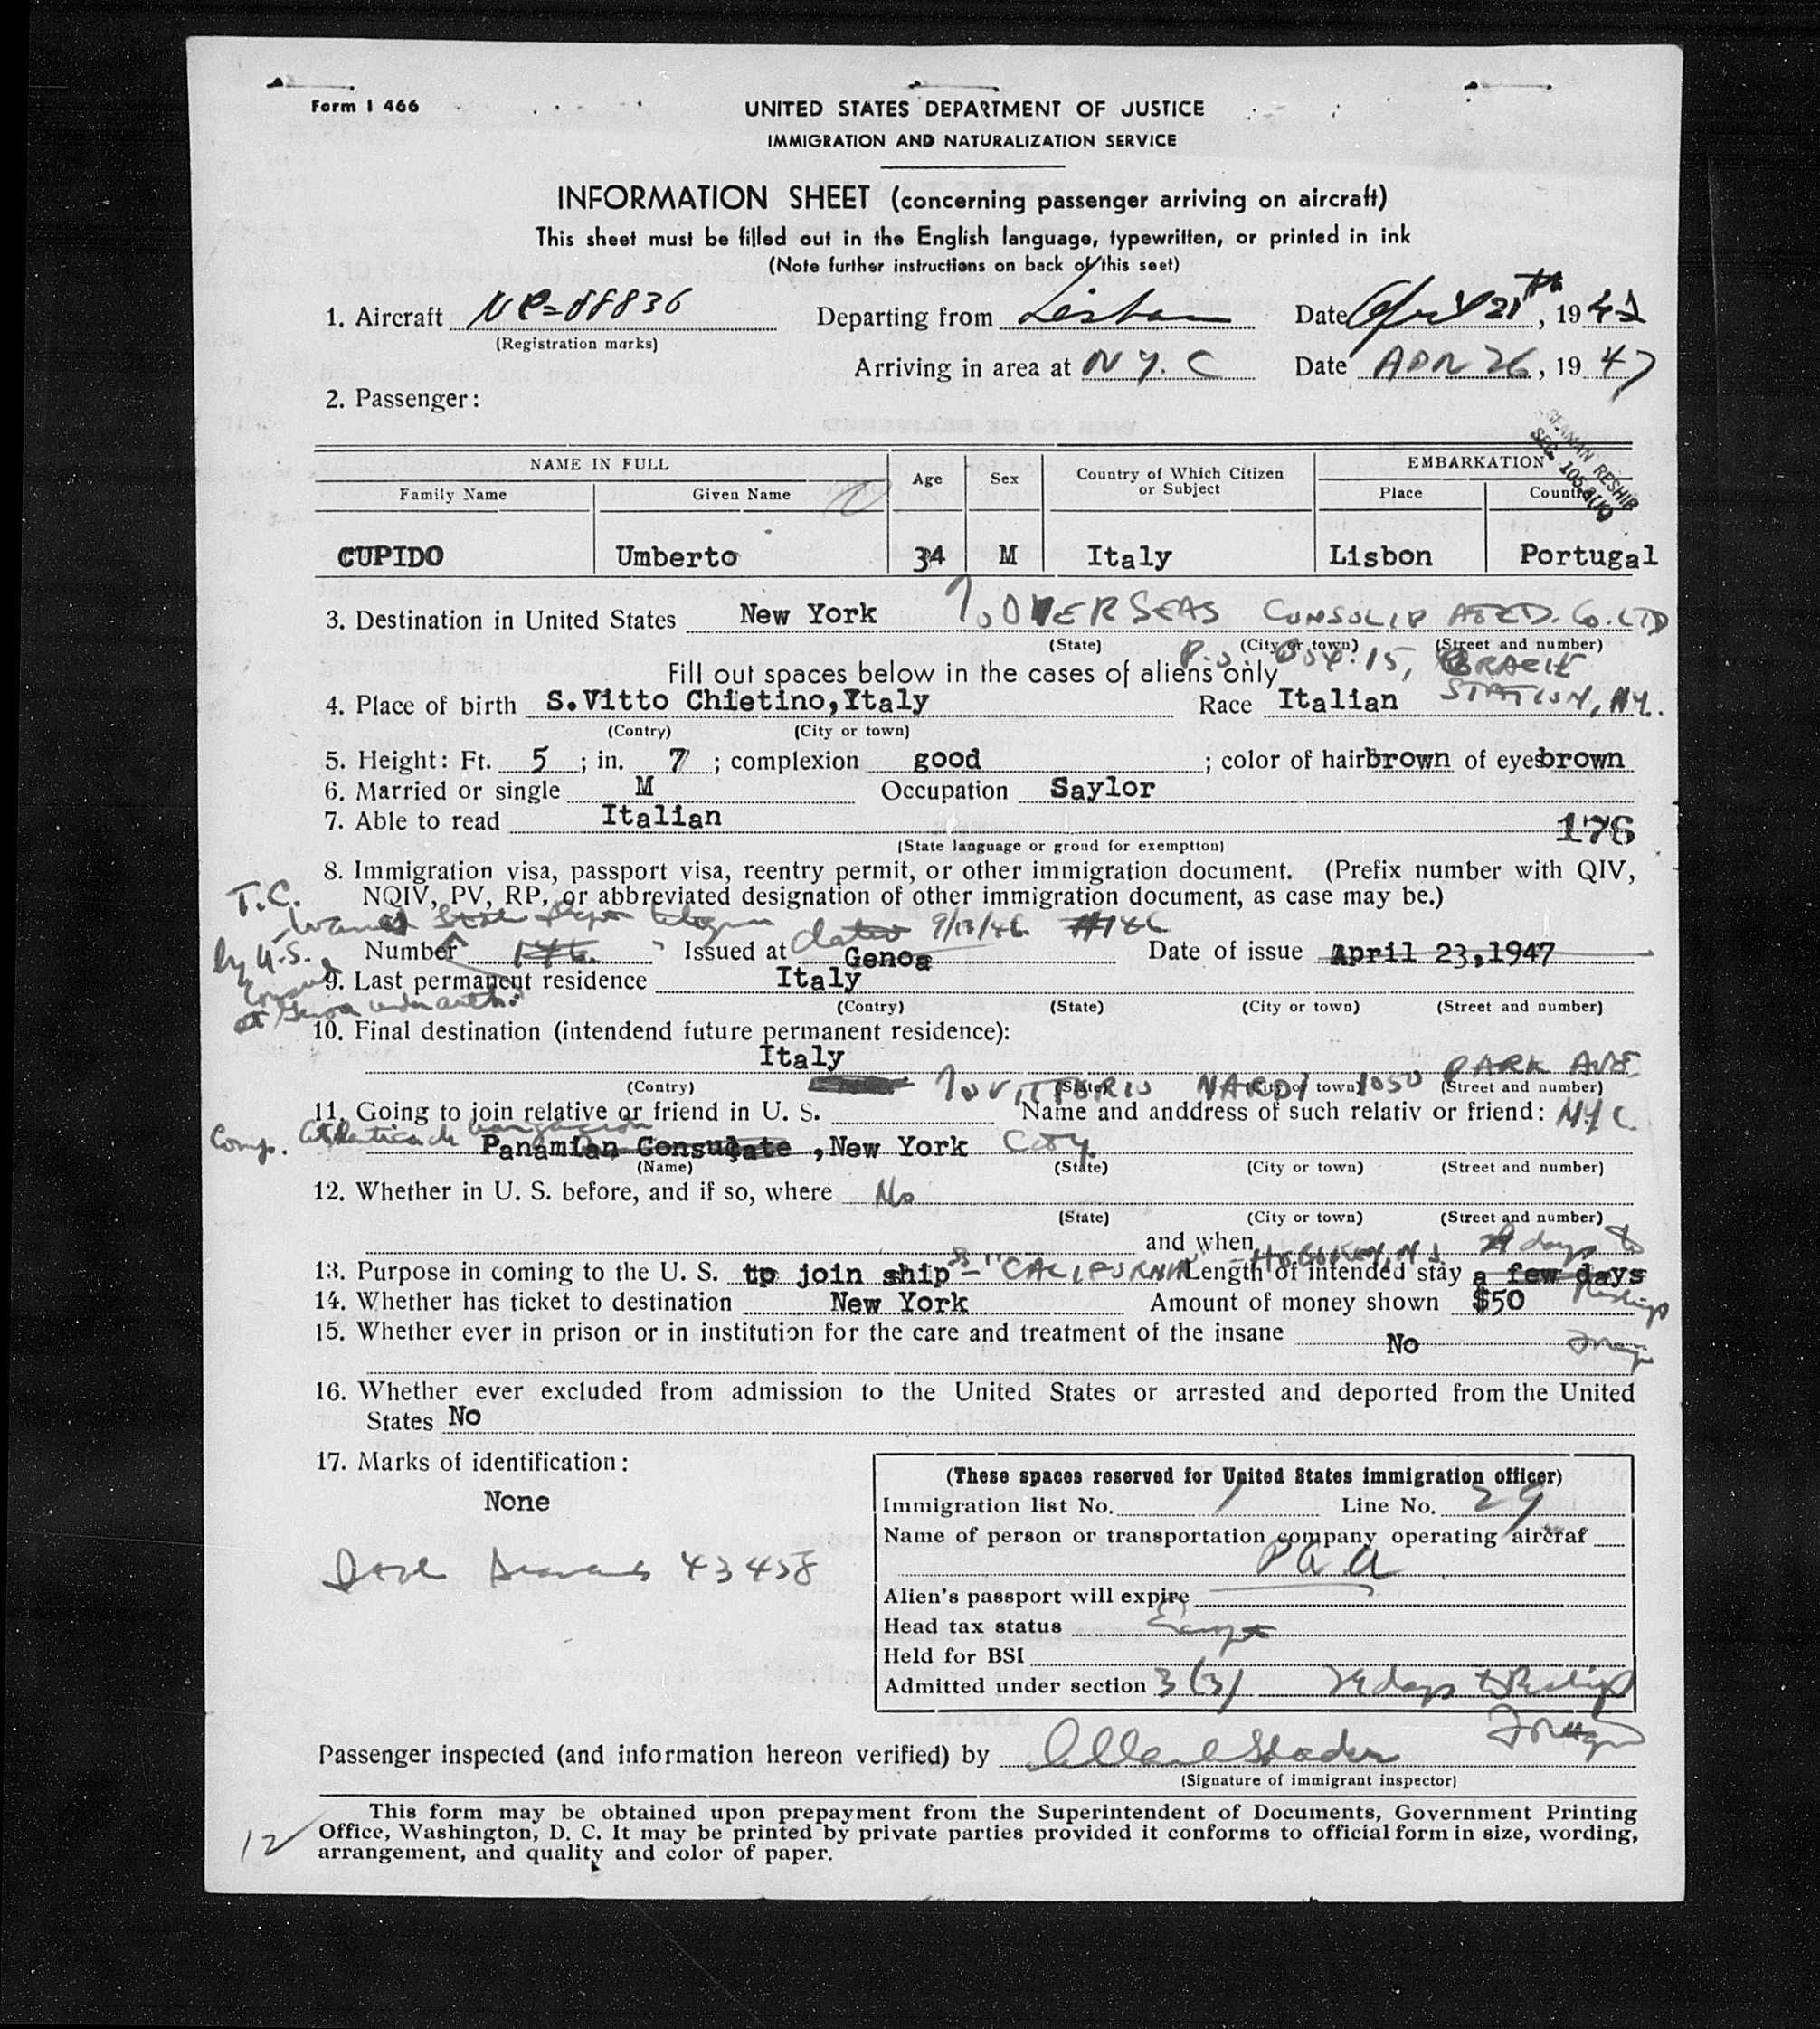 Form I 466
UNITED STATES DEPARTMENT OF JUSTICE
IMMIGRATION AND NATURALIZATION SERVICE
INFORMATION SHEET (concerning passenger arriving on aircraft)
This sheet must be filled out in the English language, typewritten, or printed in ink
(Note further instructions on back of this seet)
1. Aircraft 88836 Departing from Lisbon Date April 21th, 19
(Registration marks)
Arriving in area at N.Y.C Date APR 26, 19 47
2. Passenger:
SEAMAN RESHIP
SEC.
NAME IN FULL Age Sex Country of Which Citizen or Subject EMBARKATION
Family Name Given Name Place Country
CUPIDO Umberto 34 M Italy Lisbon Portugal
3. Destination in United States New York % OVERSEAS CONSOLIDATED. Co. LTD
(State) (City or town) (Street and number)
P.O. Box. 15, GRACIE
Fill out spaces below in the cases of aliens only
STATION, N.Y.
4. Place of birth S.Vitto Chietino,Italy Race Italian
(Contry) (City or town)
5. Height: Ft. 5 ; in. 7 ; complexion good ; color of hair brown of eyes brown
6. Married or single M Occupation Saylor
7. Able to read Italian 176
(State language or grond for exemptton)
8. Immigration visa, passport visa, reentry permit, or other immigration document. (Prefix number with QIV,
NQIV, PV, RP, or abbreviated designation of other immigration document, as case may be.)
T.C.
dated 9/13/46 #146
by U.S.
Number 146. Issued at Genoa Date of issue April 23,1947
9. Last permanent residence Italy
(Contry) (State) (City or town) (Street and number)
at Genoa under auth.
10. Final destination (intendend future permanent residence):
Italy
(Contry) (State) (City or town) (Street and number)
% VITTORIO NARDI 1050 PARK AVE.
11. Going to join relative or friend in U. S. Name and anddress of such relativ or friend: N.Y.C.
Comp.
Panamian Consulate ,New York City
(Name) (State) (City or town) (Street and number)
12. Whether in U. S. before, and if so, where No
(State) (City or town) (Street and number)
and when
HOBOKEN, N.J. 29 days to
13. Purpose in coming to the U. S. tp join ship SS "CALIFORNIA" Length of intended stay a few days
Reship
14. Whether has ticket to destination New York Amount of money shown $50
15. Whether ever in prison or in institution for the care and treatment of the insane No
16. Whether ever excluded from admission to the United States or arrested and deported from the United
States No
17. Marks of identification:
None
43458
(These spaces reserved for United States immigration officer)
Immigration list No. 1 Line No. 29
Name of person or transportation company operating aircraf
P.A.A
Alien's passport will expire
Head tax status
Held for BSI
Admitted under section 3(3) 29 days to Reship
Foreign
Passenger inspected (and information hereon verified) by
(Signature of immigrant inspector)
This form may be obtained upon prepayment from the Superintendent of Documents, Government Printing
Office, Washington, D. C. It may be printed by private parties provided it conforms to official form in size, wording,
arrangement, and quality and color of paper.
12